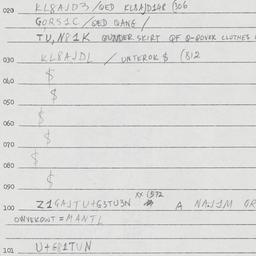 020 KL8AJD3/QED KL8AJD1GR (306
GORS1C/QED GANG/
TU,N81K QUNDER SKIRT OF Q-ROVER CLOTHES
030 KL8AJDL / UNTEROK $ (312
040 $
050 $
060 $
070 $
080 $
090 $
XX (572
100 Z1GAJTU+G3TU3N A NAJ1M OR
OMVEKOWT = MANTL
101 U+E81TUN